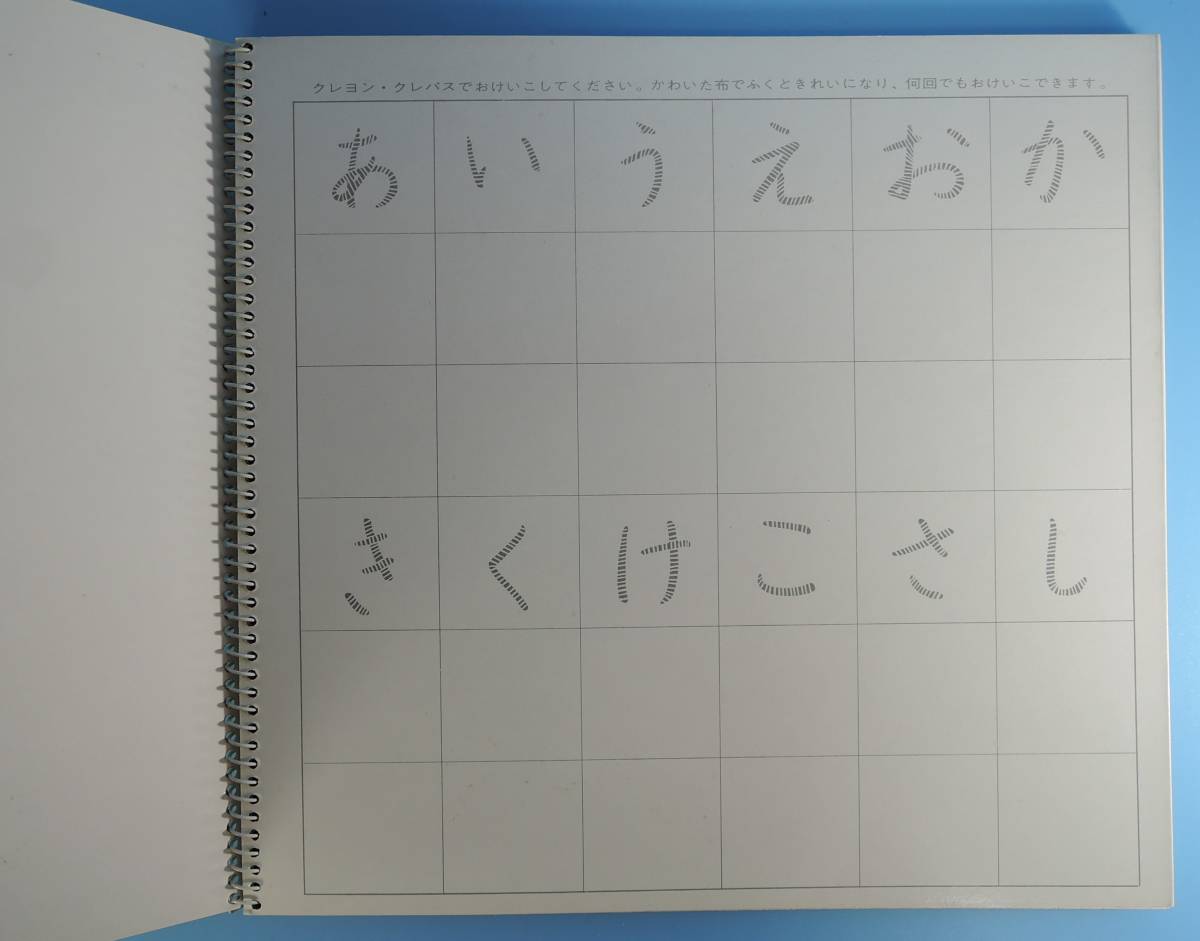 クレヨン・クレパスでおけいこしてください。かわいた布でふくときれいになり、何回でもおけいこできます。
あ い う え お か
き く け こ さ し